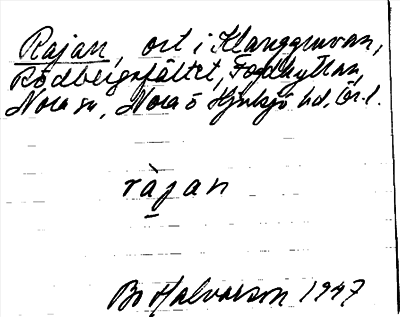 Rajan, ort i Klanggruvan,
Rödbergsfältet, Fogdhyttan,
Nora sn, Nora o Hjulsjö hd, Ör. l.
ràjan
Bo Halvarson 1947